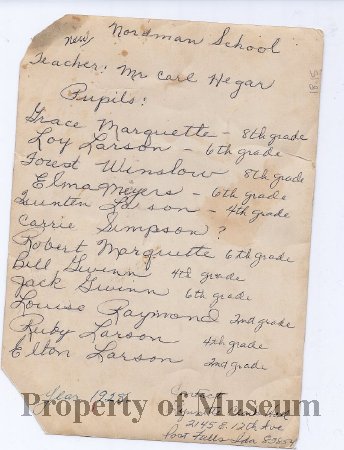 new Nordman School
Teacher: Mr Carl Hegar
Pupils:
Grace Marquette - 8th grade
Loy Larson - 6th grade
Forest Winslow 8th grade
Elma Meyers - 6th grade
Quentin Larson - 4th grade
Carrie Simpson ?
Robert Marquette 6th grade
Bill Gwinn 4th grade
Jack Gwinn 6th grade
Louise Raymond 2nd grade
Ruby Larson 4th grade
Elton Larson 2nd grade
Year 1928
2145 E. 12th Ave
Post Falls Ida 83854
Property of Museum